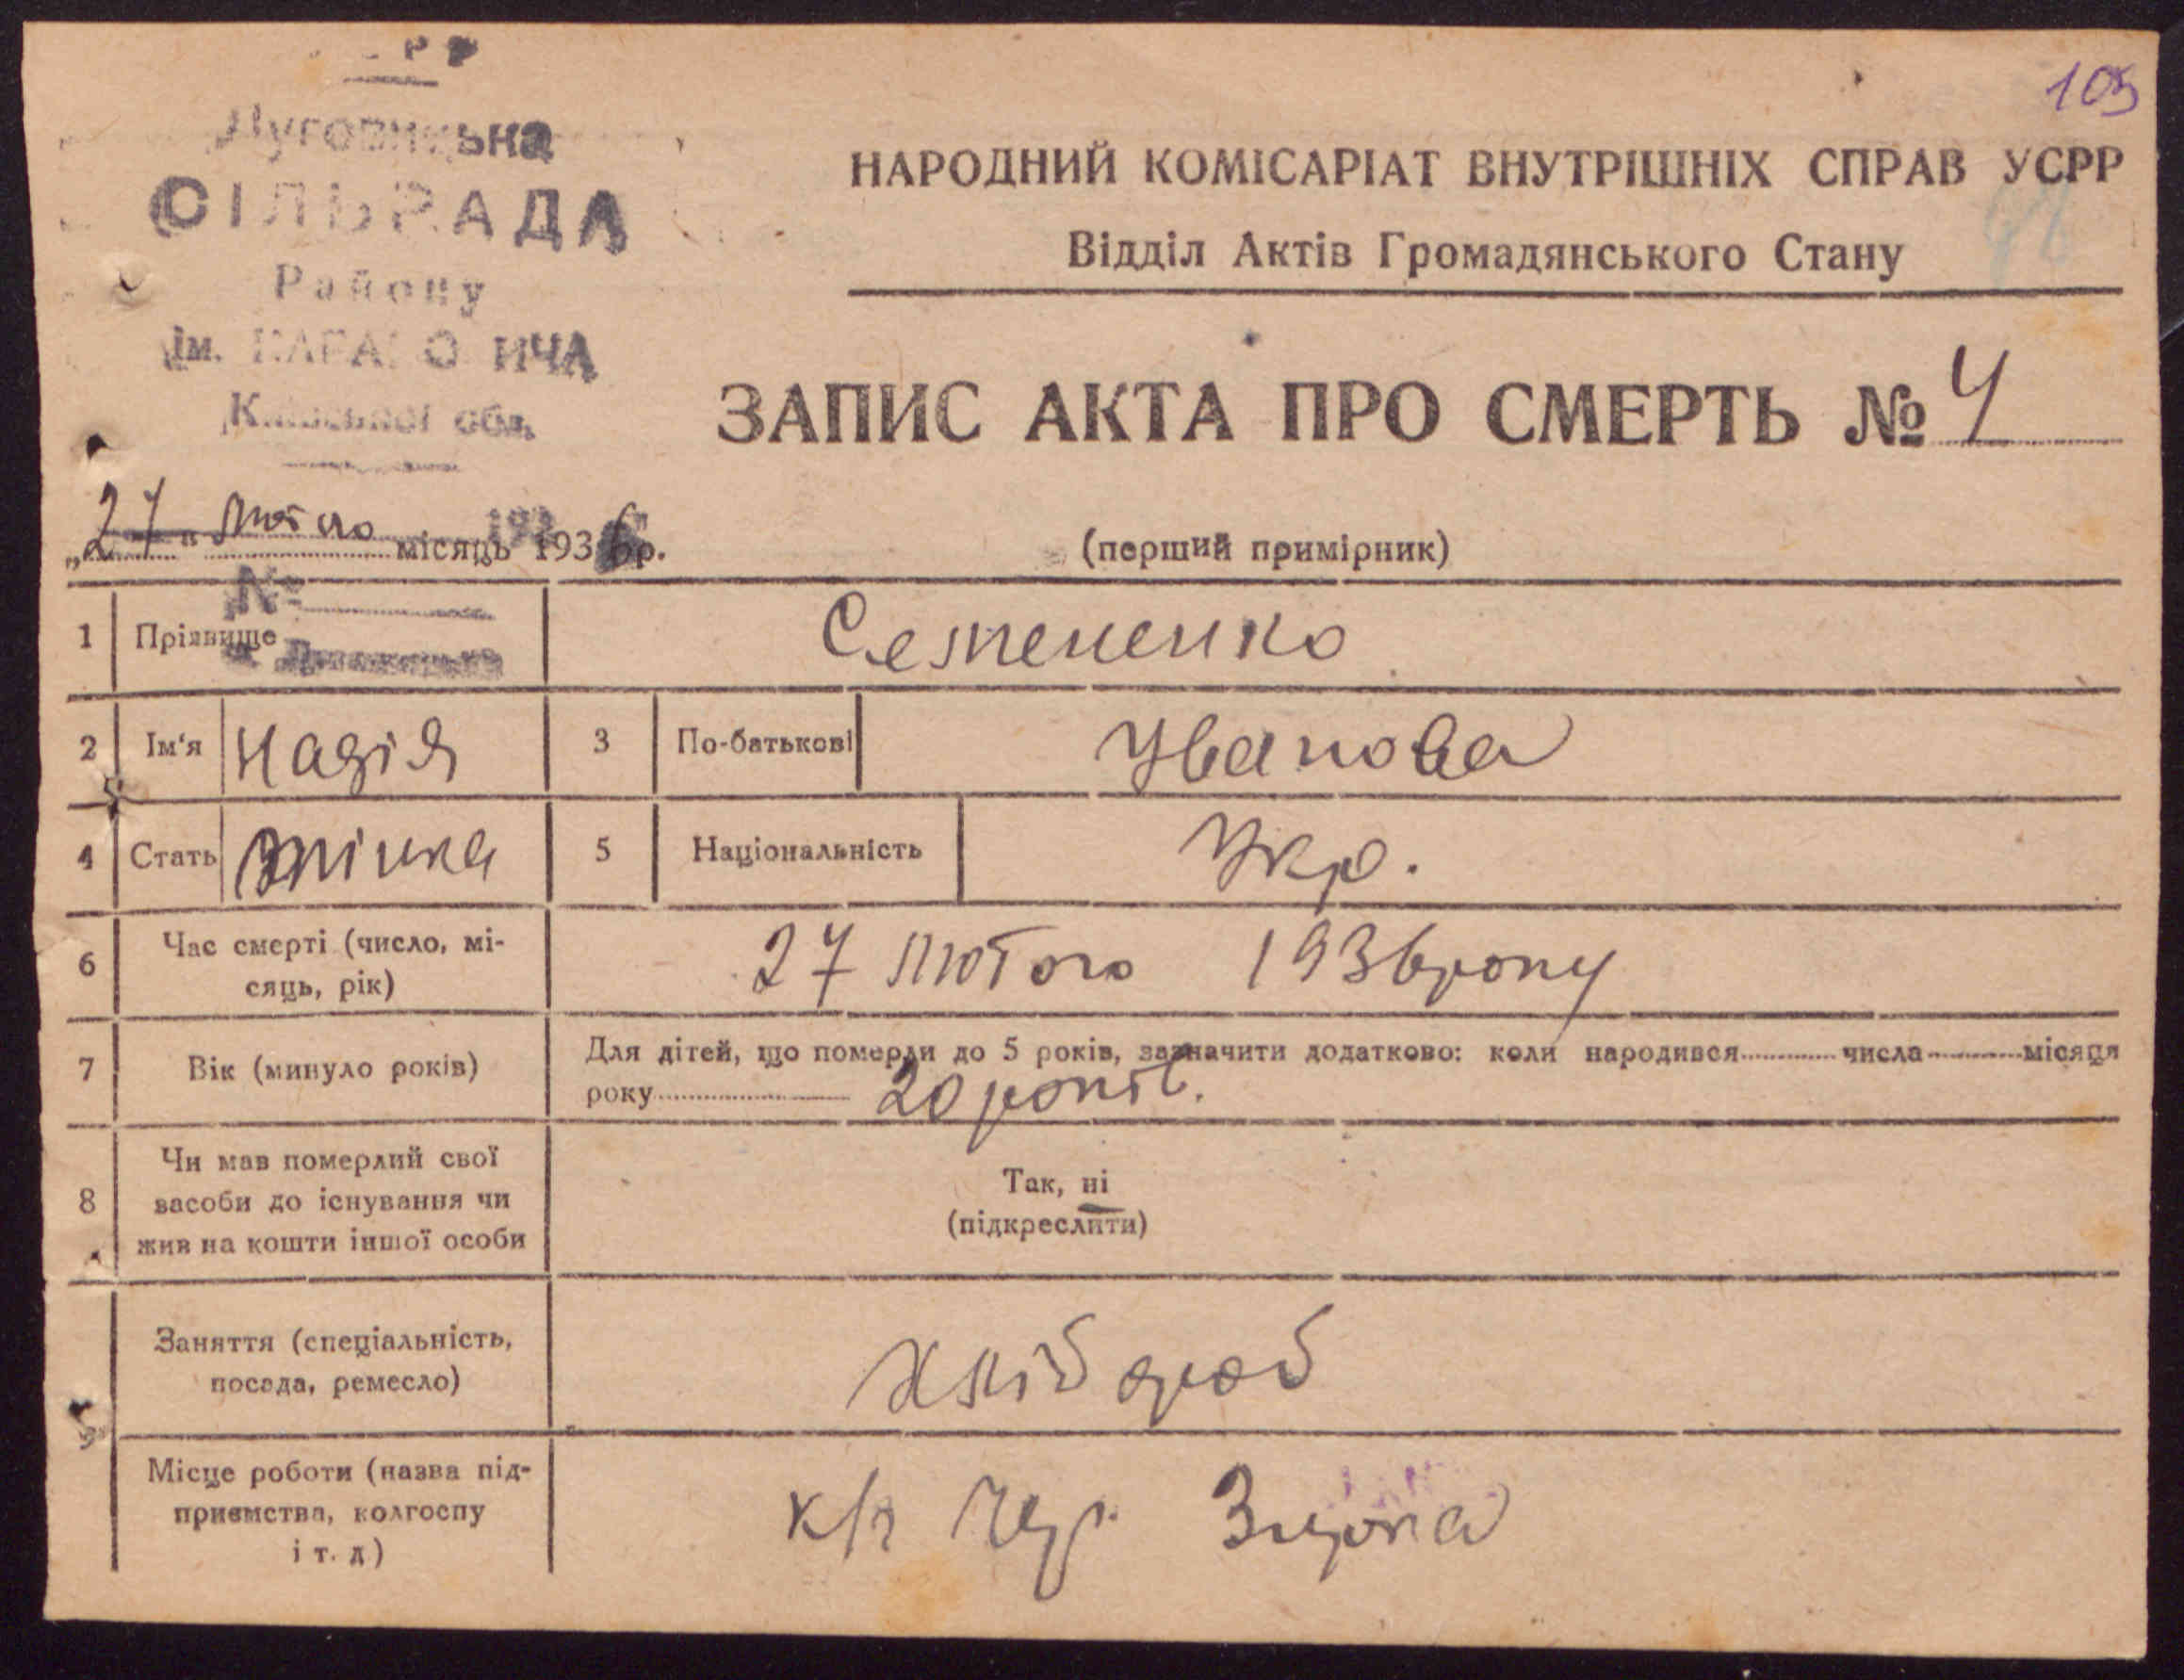 105
Луговицька
СІЛЬРАДА
Району
ім. КАГАНОВИЧА
Київської обл.
НАРОДНИЙ КОМІСАРІАТ ВНУТРІШНІХ СПРАВ УСРР
Відділ Актів Громадянського Стану
ЗАПИС АКТА ПРО СМЕРТЬ № 4
„27" лютого місяць 1936 р.
(перший примірник)
№
1 Прізвище Семененко
2 Ім'я Надія 3 По-батькові Иванова
4 Стать жінка 5 Національність Укр.
6 Час смерті (число, мі-
сяць, рік) 27 лютого 1936 року
7 Вік (минуло років) Для дітей, що померли до 5 років, зазначити додатково: коли народився числа місяця
року 20 років.
8 Чи мав померлий свої
засоби до існування чи
жив на кошти іншої особи
Так, ні
(підкреслити)
Заняття (спеціальність,
посада, ремесло) Хлібороб
Місце роботи (назва під-
приємства, колгоспу
і т. д) к/г Чер. Зирка